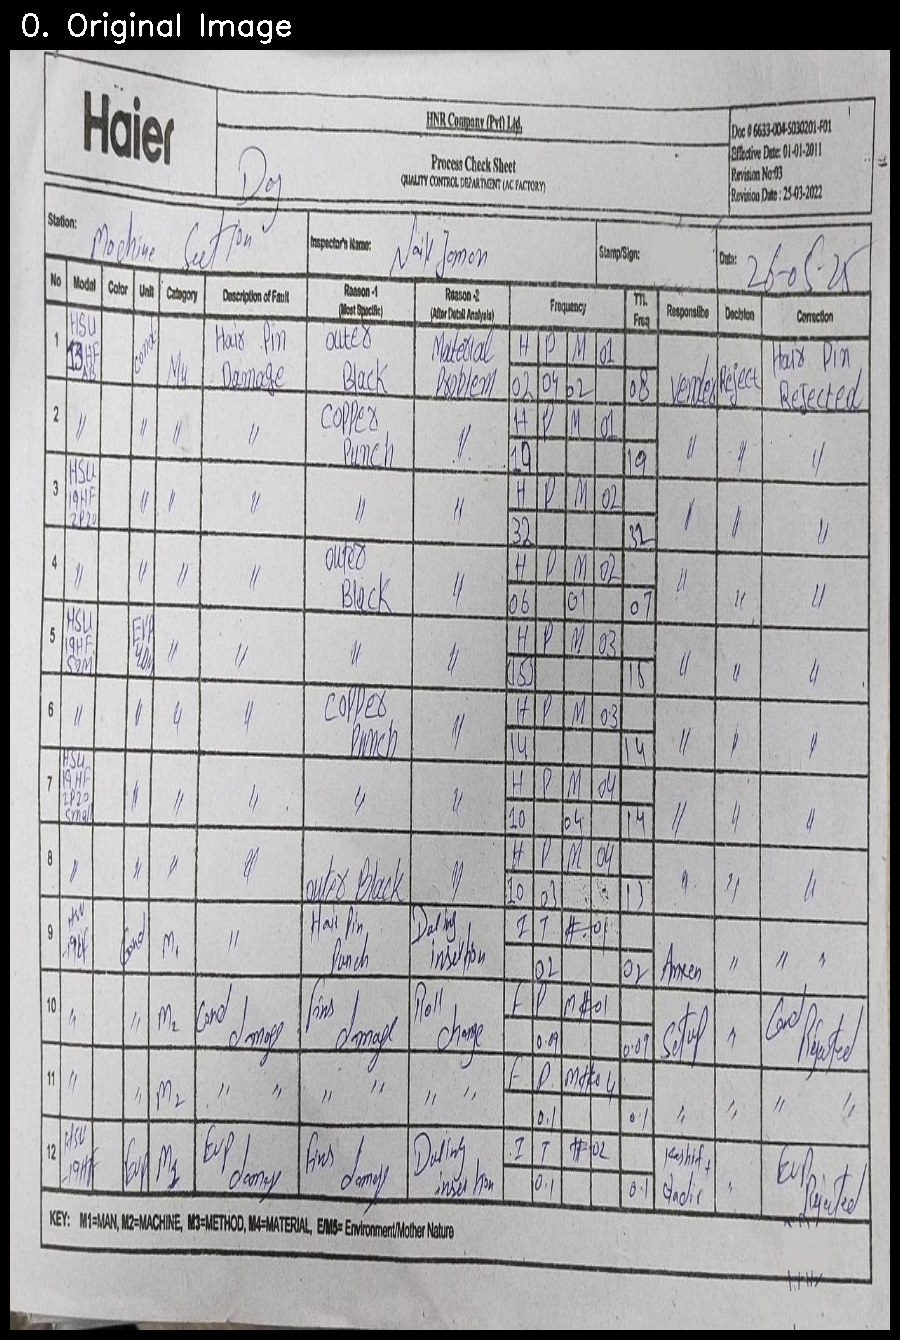 0. Original Image
Haier
HNR Company (Pvt) Ltd.
Process Check Sheet
QUALITY CONTROL DEPARTMENT (AC FACTORY)
Doc # 6633-004-5030201-F01
Effective Date: 01-01-2011
Revision No:03
Revision Date : 25-03-2022
Station: Machine Section Inspector's Name: Stamp/Sign: Date: 26-05-25
No Model Color Unit Category Description of Fault Reason -1 (Most Specific) Reason -2 (After Detail Analysis) Frequency TTL Freq Responsilbe Decision Correction
1 HSU 13HF Cond M4 Hair Pin Damage outer Black Material Problem H P M 01 02 04 02 08 Vender Reject Hair Pin Rejected
2 " " " " Copper Punch " H P M 01 19 19 " " "
3 HSU 19HF 2P20 " " " " " H P M 02 32 32 " " "
4 " " " " outer Black " H P M 02 06 01 07 " " "
5 HSU 19HF EVP " " " " H P M 03 15 15 " " "
6 " " " " Copper Punch " H P M 03 14 14 " " "
7 HSU 19HF 2P20 Small " " " " " H P M 04 10 04 14 " " "
8 " " " " outer Black " H P M 04 10 03 13 " " "
9 HSU 19HF Cond M1 " Hair Pin Punch During insertion I T #01 02 02 " " "
10 " " M2 Cond damage fins damage Roll change F P M#01 0.09 0.09 Setup " Cond Rejected
11 " " M2 " " " " " " F P 0.1 0.1 " " " "
12 HSU 19HF Evp Evp damage fins damage During insertion I T #02 0.1 0.1 Kashif + Qadir " Evp Rejected
KEY: M1=MAN, M2=MACHINE, M3=METHOD, M4=MATERIAL, E/M5= Environment/Mother Nature